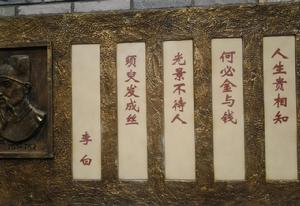 人生贵相知
何必金与钱
光景不待人
须臾发成丝
李白